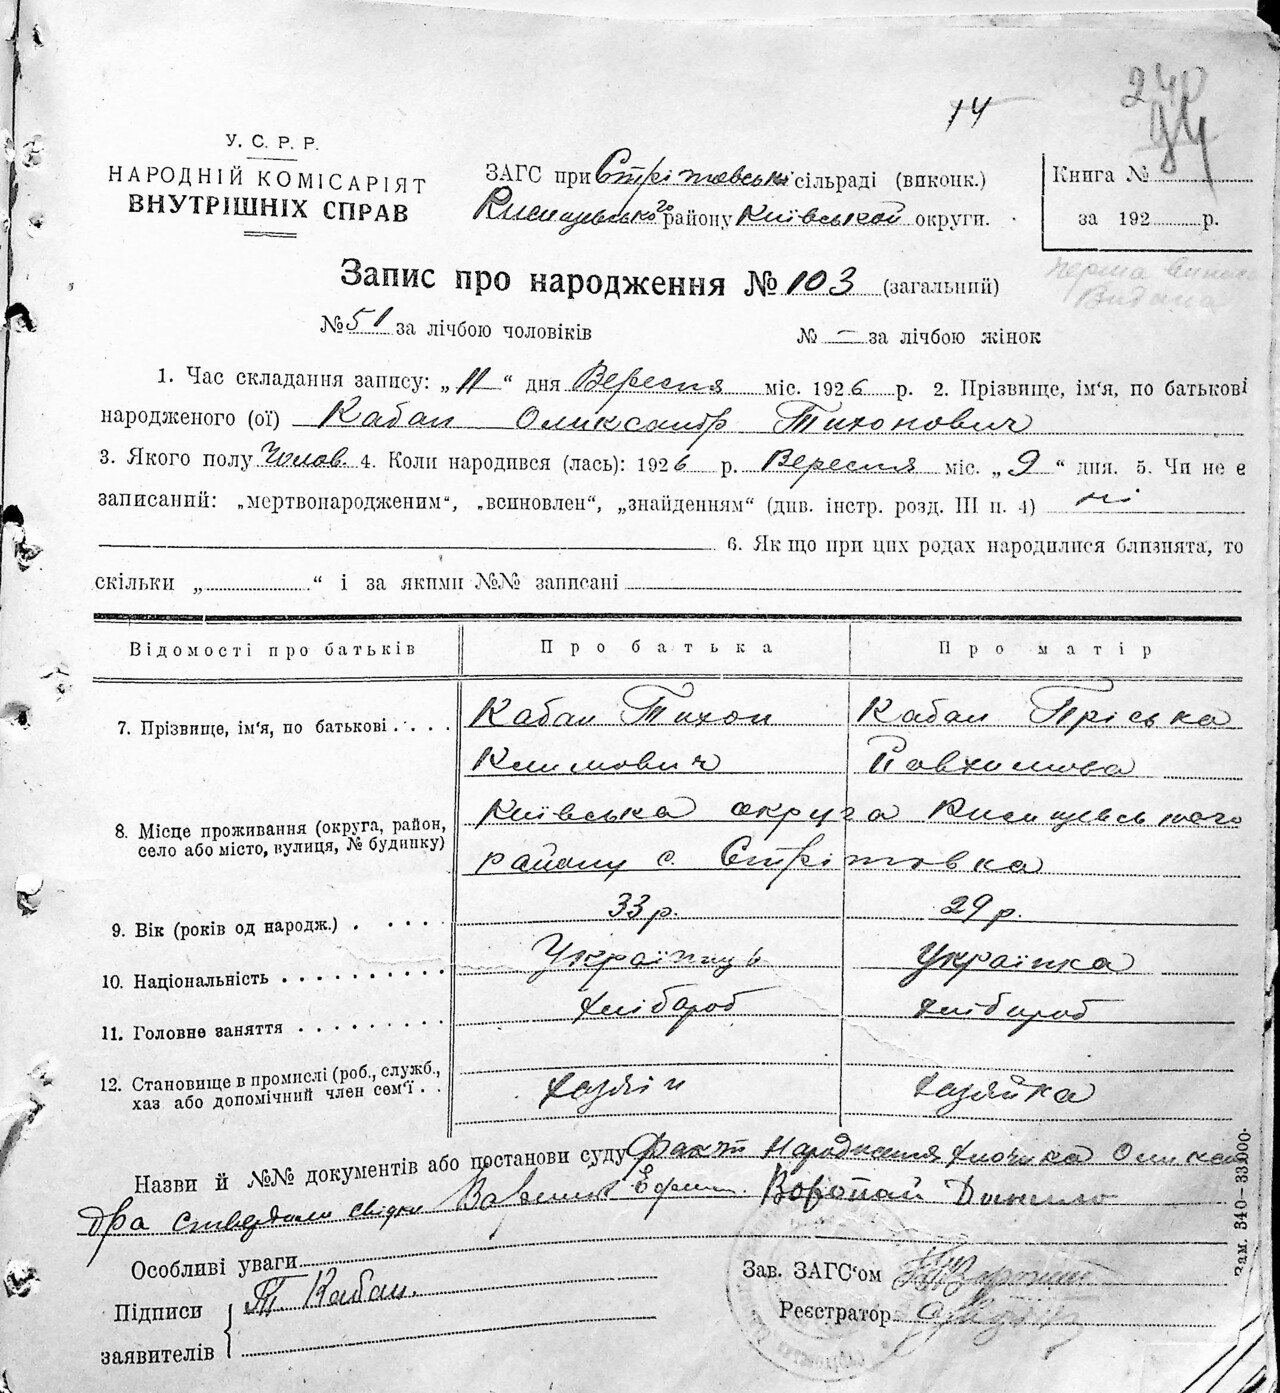 240
14
94
У. С. Р. Р.
НАРОДНІЙ КОМІСАРІЯТ
ВНУТРІШНІХ СПРАВ
ЗАГС при Стрітовській сільраді (виконк.)
району Київської округи.
Книга №
за 192 р.
перша випись
Видана
Запис про народження № 103 (загальний)
№ 51 за лічбою чоловіків № — за лічбою жінок
1. Час складання запису: „11“ дня Вересня міс. 1926 р. 2. Прізвище, ім‘я, по батькові
народженого (ої) Кабан Олександр Тихонович
3. Якого полу Чолов. 4. Коли народився (лась): 1926 р. Вересня міс. „9“ дня. 5. Чи не є
записаний: „мертвонародженим“, „всиновлен“, „знайденням“ (див. інстр. розд. III п. 4) ні
6. Як що при цих родах народилися близнята, то
скільки „ “ і за якими №№ записані
Відомості про батьків Про батька Про матір
7. Прізвище, ім‘я, по батькові Кабан Тихон Кабан Пріська
Климович Павхимова
8. Місце проживання (округа, район, село або місто, вулиця, № будинку) Київська округа
району с. Стрітовка
9. Вік (років од народж.) 33 р. 29 р.
10. Національність Українець Українка
11. Головне заняття Хлібороб Хлібороб
12. Становище в промислі (роб., служб., хаз або допомічний член сем‘ї Хазяїн Хазяйка
Назви й №№ документів або постанови суду Факт Народження хлопчика Олексан
дра ствердили свідки Воропай Данило
Особливі уваги
Підписи
заявителів
Т Кабан.
Зав. ЗАГС‘ом
Реєстратор
Зам. 340—33.000.